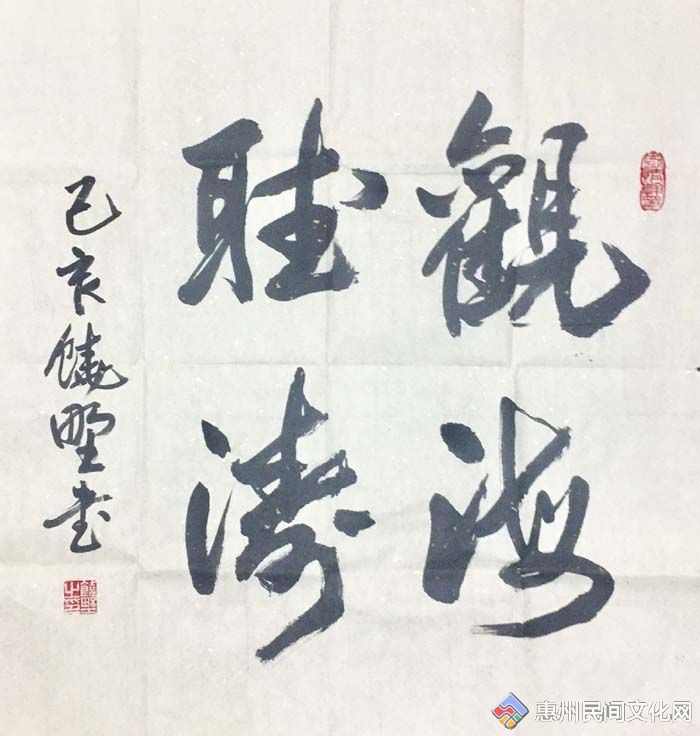 觀海
聽濤
己亥饒野书
惠州民间文化网